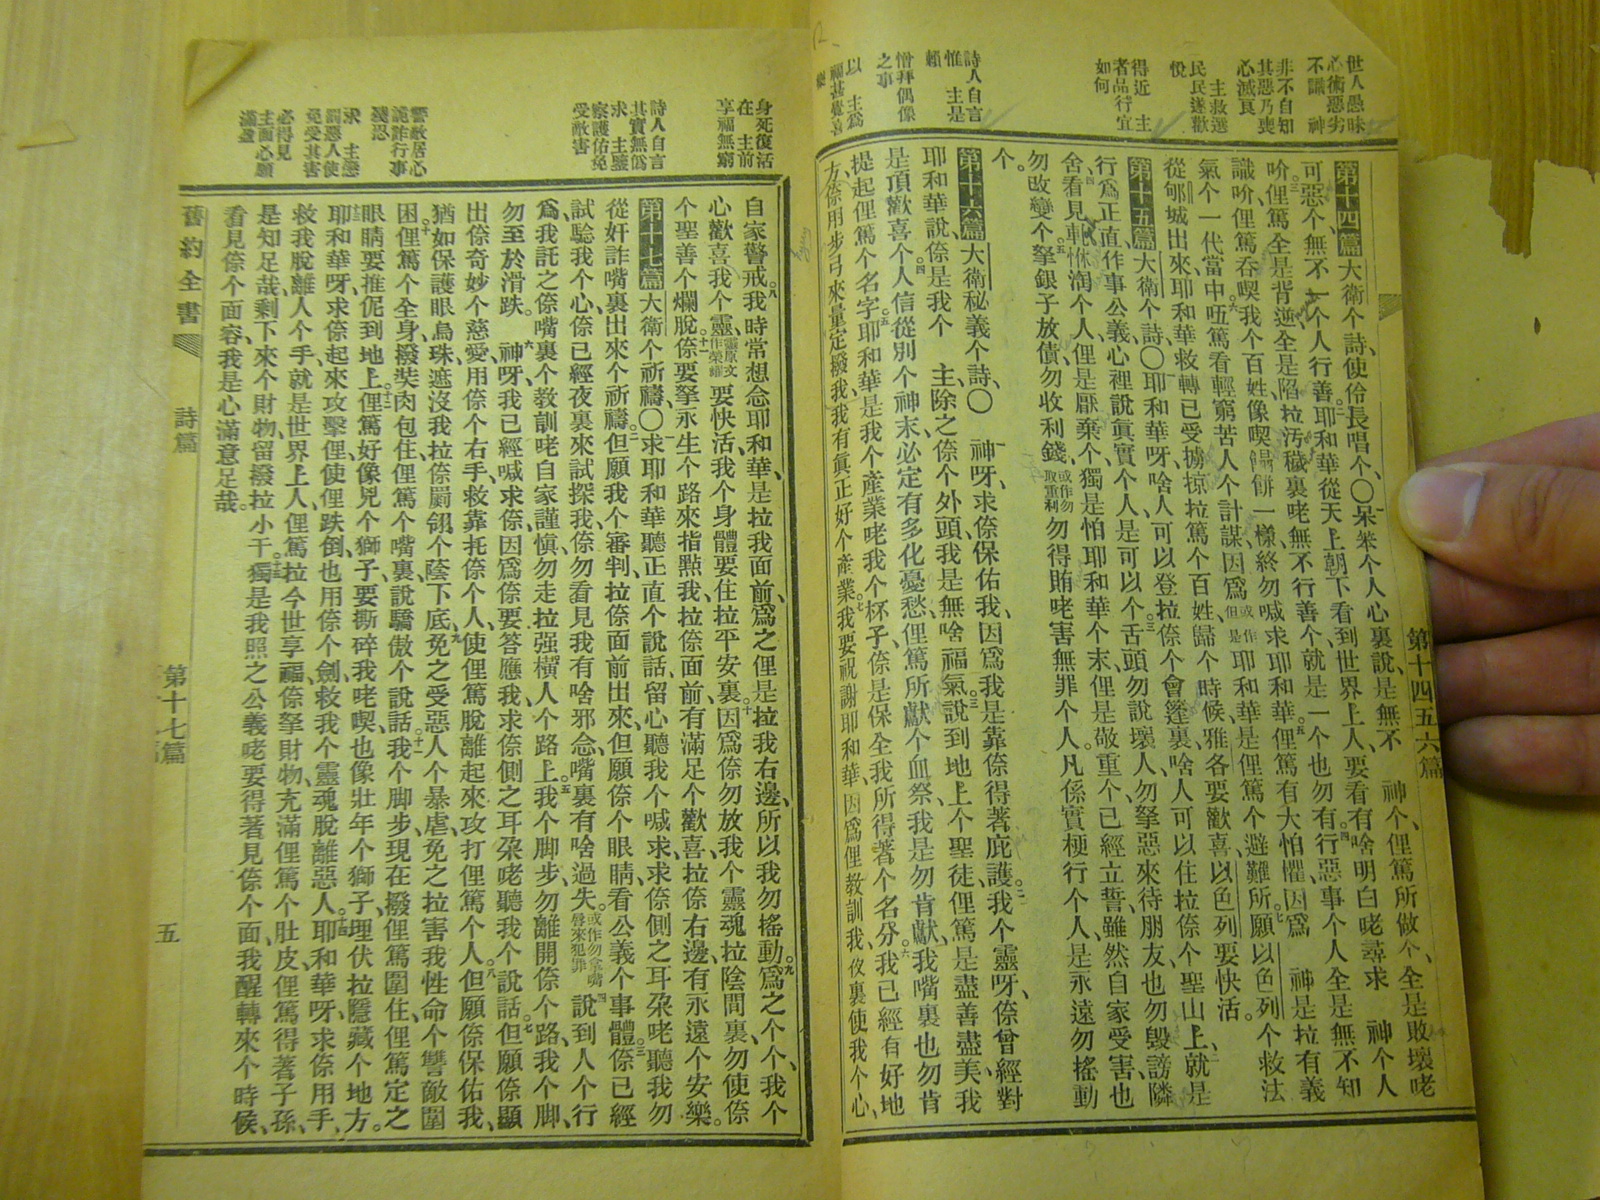 世人愚昧
心術惡劣
不識　神
非不自知
其惡乃喪
心滅良
主救選
民民遂歡
悅
得近　主
者品行宜
如何
詩人自言
惟　主是
賴
憎拜偶像
之事
以　主爲
福甚覺喜
樂
第十四五六篇
第十四篇大衛个詩、使伶長唱个、〇呆笨个人心裏說、是無不　神个、俚篤所做个、全是敗壞咾
可惡个、無不一个人行善。二耶和華從天上朝下看到世界上人、要看有啥明白咾尋求　神个人
吤。三俚篤全是背逆、全是陷拉汚穢裏咾無不行善个、就是一个也勿有。四行惡事个人全是無不知
識吤、俚篤吞喫我个百姓、像喫餅餅一樣、終勿喊求耶和華。五俚篤有大怕懼、因爲　神是拉有義
氣个一代當中。六㑚篤看輕窮苦人个計謀、因爲或作但是耶和華是俚篤个避難所。七願以色列个救法
從郇城出來、耶和華救轉已受擄掠拉篤个百姓歸个時候、雅各要歡喜、以色列要快活。
第十五篇大衛个詩、〇耶和華呀、啥人可以登拉倷个會篷裏、啥人可以住拉倷个聖山上。二就是
行爲正直、作事公義、心裡說眞實个人、是可以个。三舌頭勿說壞人、勿拏惡來待朋友、也勿毀謗隣
舍。四看見齷齪个人、俚是厭棄个、獨是怕耶和華个末、俚是敬重个、已經立誓、雖然自家受害、也
勿改變个。五拏銀子放債、勿收利錢、或作勿取重利勿得賄咾害無罪个人。凡係實梗行个人、是永遠勿搖動
个。
第十六篇大衛秘義个詩、〇　神呀、求倷保佑我、因爲我是靠倷得著庇護。二我个靈呀、倷曾經對
耶和華說、倷是我个　主、除之倷个外頭、我是無啥福氣。三說到地上个聖徒、俚篤是盡善盡美、我
是頂歡喜个。四人信從別个神末、必定有多化憂愁、俚篤所獻个血祭、我是勿肯獻、我嘴裏也勿肯
提起俚篤个名字。五耶和華是我个產業咾我个杯子、倷是保全我所得著个名分。六我已經有好地
方、倷用步弓來量定撥我、我有眞正好个產業。七我要祝謝耶和華、因爲俚教訓我、夜裏使我个心、
身死復活
在　主前
享福無窮
詩人自言
其實無僞
求　主鑒
察護佑免
受敵害
警敵居心
詭詐行事
殘忍
求　主懲
罰惡人使
免受其害
必得見
主面心願
滿盈
自家警戒。八我時常想念耶和華、是拉我面前、爲之俚是拉我右邊、所以我勿搖動。九爲之个个、我个
心歡喜、我个靈靈原文作榮耀要快活、我个身體要住拉平安裏。十因爲倷勿放我个靈魂拉陰間裏、勿使倷
个聖善个爛脫。十一倷要拏永生个路來指點我、拉倷面前有滿足个歡喜、拉倷右邊有永遠个安樂。
第十七篇大衛个祈禱、〇求耶和華聽正直个說話、留心聽我个喊求、求倷側之耳朶咾聽我勿
從奸詐嘴裏出來个祈禱。二但願我个審判拉倷面前出來、但願倷个眼睛看公義个事體。三倷已經
試騐我个心、倷已經夜裏來試探我、倷勿看見我有啥邪念、嘴裏有啥過失。或作勿拿嘴唇來犯罪四說到人个行
爲、我託之倷嘴裏个教訓咾自家謹愼、勿走拉强橫人个路上。五我个脚步、勿離開倷个路、我个脚、
勿至於滑跌。六　神呀、我已經喊求倷、因爲倷要答應我、求倷側之耳朶咾聽我个說話。七但願倷顯
出倷奇妙个慈愛、用倷个右手、救靠托倷个人、使俚篤脫離起來攻打俚篤个人。八但願倷保佑我、
猶如保護眼烏珠、遮沒我拉倷翼翎个蔭下底。九免之受惡人个暴虐、免之拉害我性命个讐敵圍
困。十俚篤个全身、撥奘肉包住、俚篤个嘴裏、說驕傲个說話。十一我个脚步、現在撥俚篤圍住、俚篤定之
眼睛、要推伲到地上。十二俚篤好像兇个獅子、要撕碎我咾喫、也像壯年个獅子、埋伏拉隱藏个地方。
十三耶和華呀、求倷起來攻擊俚、使俚跌倒、也用倷个劍、救我个靈魂脫離惡人。十四耶和華呀、求倷用手、
救我脫離人个手、就是世界上人、俚篤拉今世享福、倷拏財物、充滿俚篤个肚皮、俚篤得著子孫、
是知足哉、剩下來个財物、留撥拉小干。十五獨是我照之公義咾要得著見倷个面、我醒轉來个時候、
看見倷个面容、我是心滿意足哉。
舊約全書　詩篇　第十七篇　五